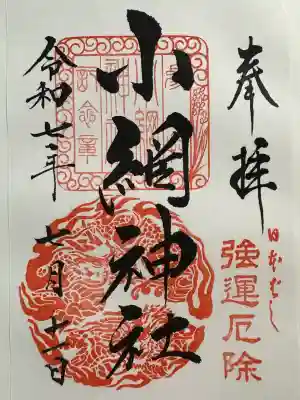 奉拝
日本ばし
強運厄除
小網神社
令和七年
七月十一日